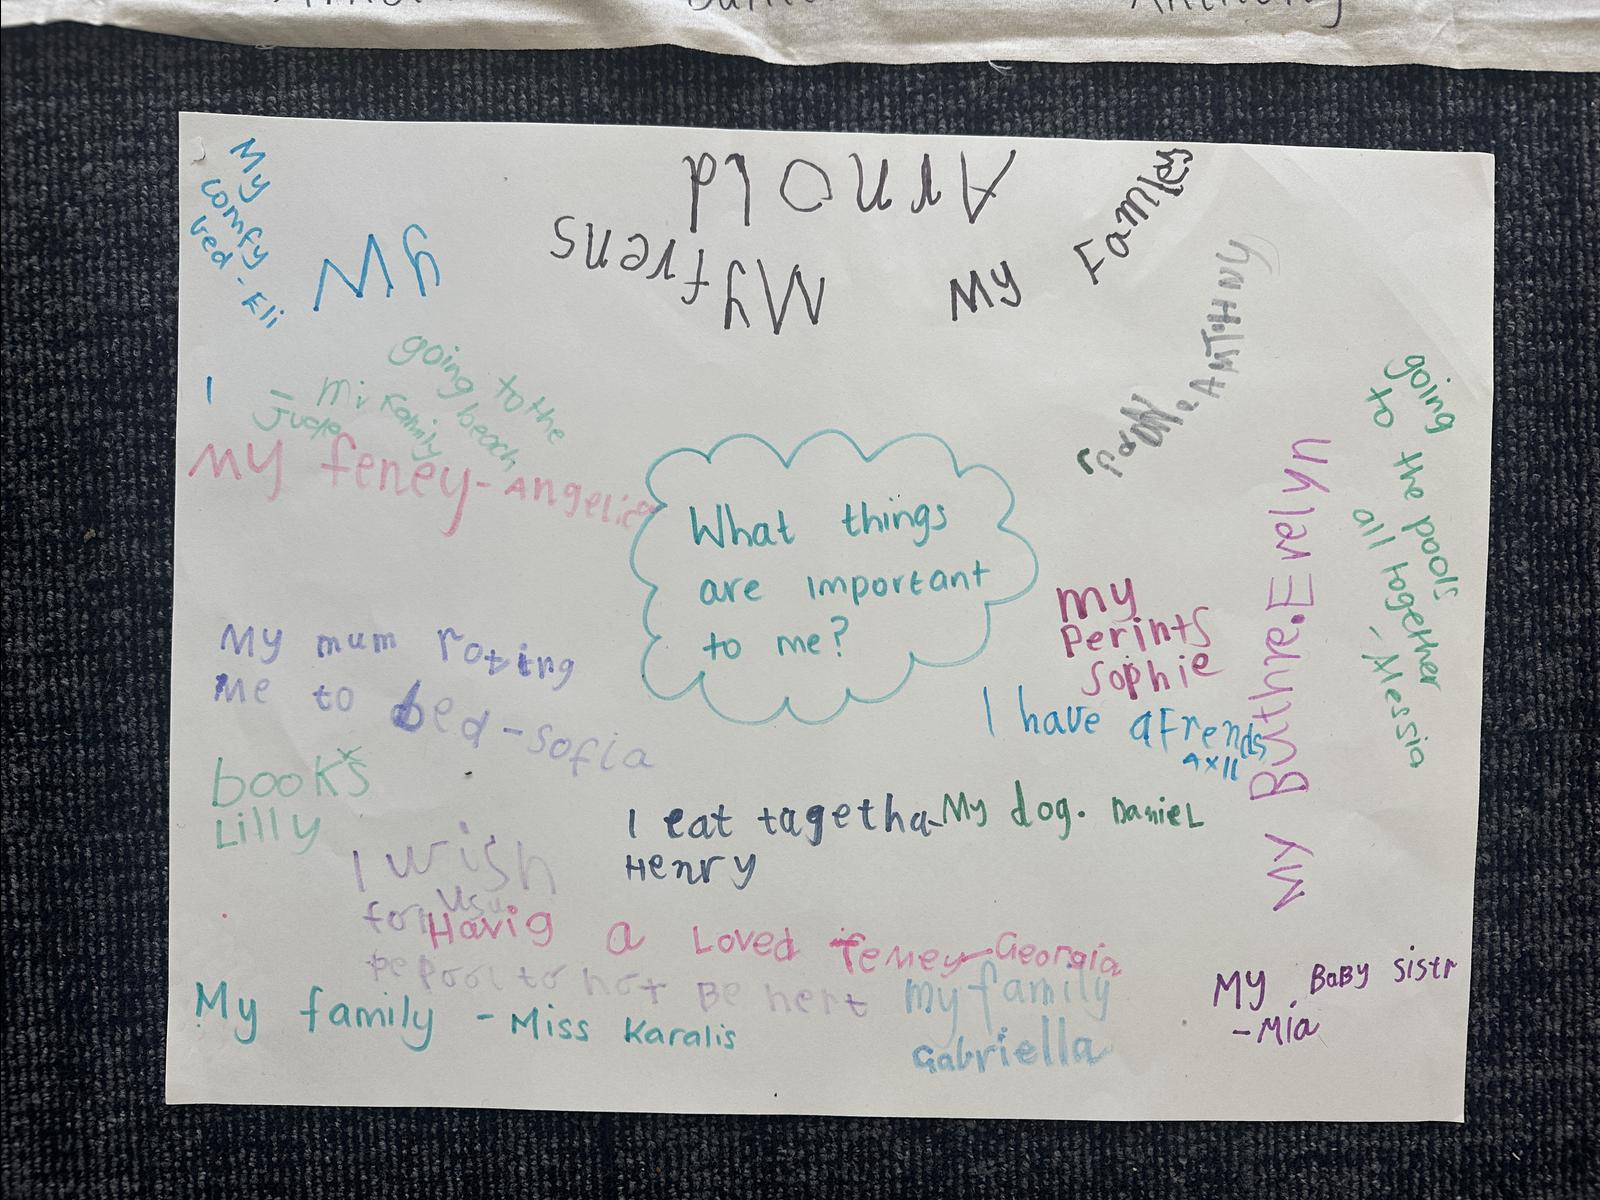 My
comfy
bed - Eli
My
Arnold
My frens
My Famles
going to the
going beach
Mi Family
Jude
I
My feney - Angelica
ANTHNY
going to the pools
all together
- Alessia
What things
are important
to me?
My mum
me to bed - sofia
my
Perints
Sophie
I have a Frends
Axll
My Buthre. Evelyn
books
Lilly
I eat tagetha -
Henry
My dog. Daniel
I wish
for
Havig a Loved feney - Georgia
to not Be hert
My family - Miss Karalis
my family
Gabriella
My Baby sistr
- Mia